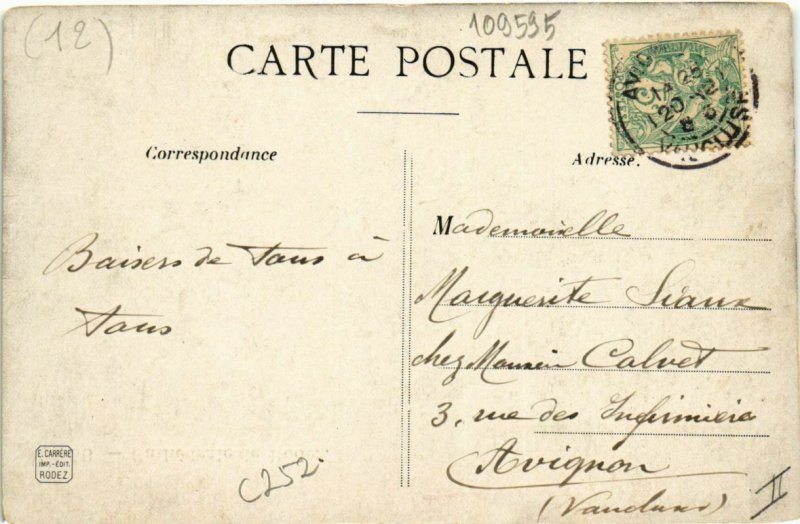 (12)
109595
CARTE POSTALE
Correspondance
Adresse.
Baisers de Tous à
Tous
Mademoiselle
Marguerite
chez Monsieur Calvet
3, rue des Infirmières
Avignon
(Vaucluse)
E. CARRÈRE
IMP.-ÉDIT.
RODEZ
C252.
II